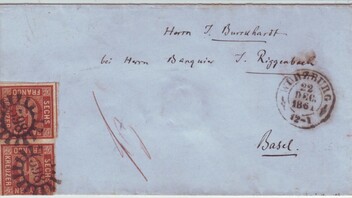 Herrn J. Burckhardt
bei Herrn Banquier J. Riggenbach
WÜRZBURG
22
DEC.
1861
12-1
Basel.
SECHS
FRANCO
SECHS
FRANCO
KREUZER